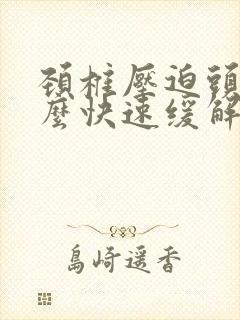 頸椎壓迫頭
麼快速緩解
島崎遥香